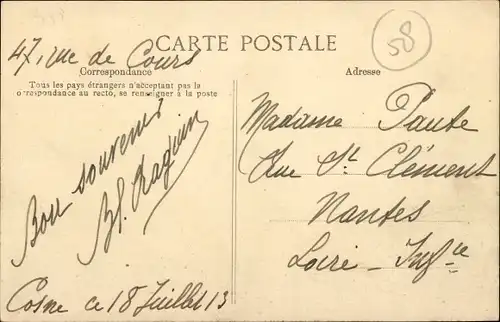 CARTE POSTALE
58
47, rue de Cours
Correspondance
Tous les pays étrangers n'acceptant pas la
correspondance au recto, se renseigner à la poste
Adresse
Bon souvenir
Bl. Raguin
Cosne ce 18 Juillet 13
Madame Paute
Rue St Clément
Nantes
Loire - Infce